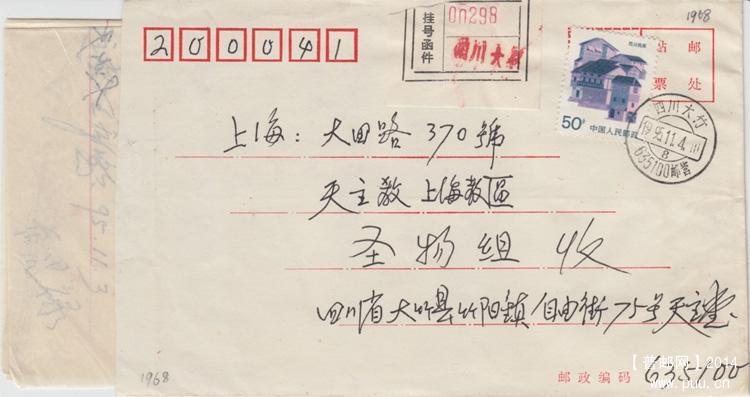 1968
挂号函件
00298
四川大竹
200041
四川民居
50分
中国人民邮政
贴邮
票处
四川大竹
1995.11.4.18
8
635100邮营
上海：大田路370號
天主教上海教區
圣物组 收
四川省大竹县竹阳鎮自由街75号天主堂
邮政编码 635100
1968
95.11.3
【普邮网】2014
www.puu.cn